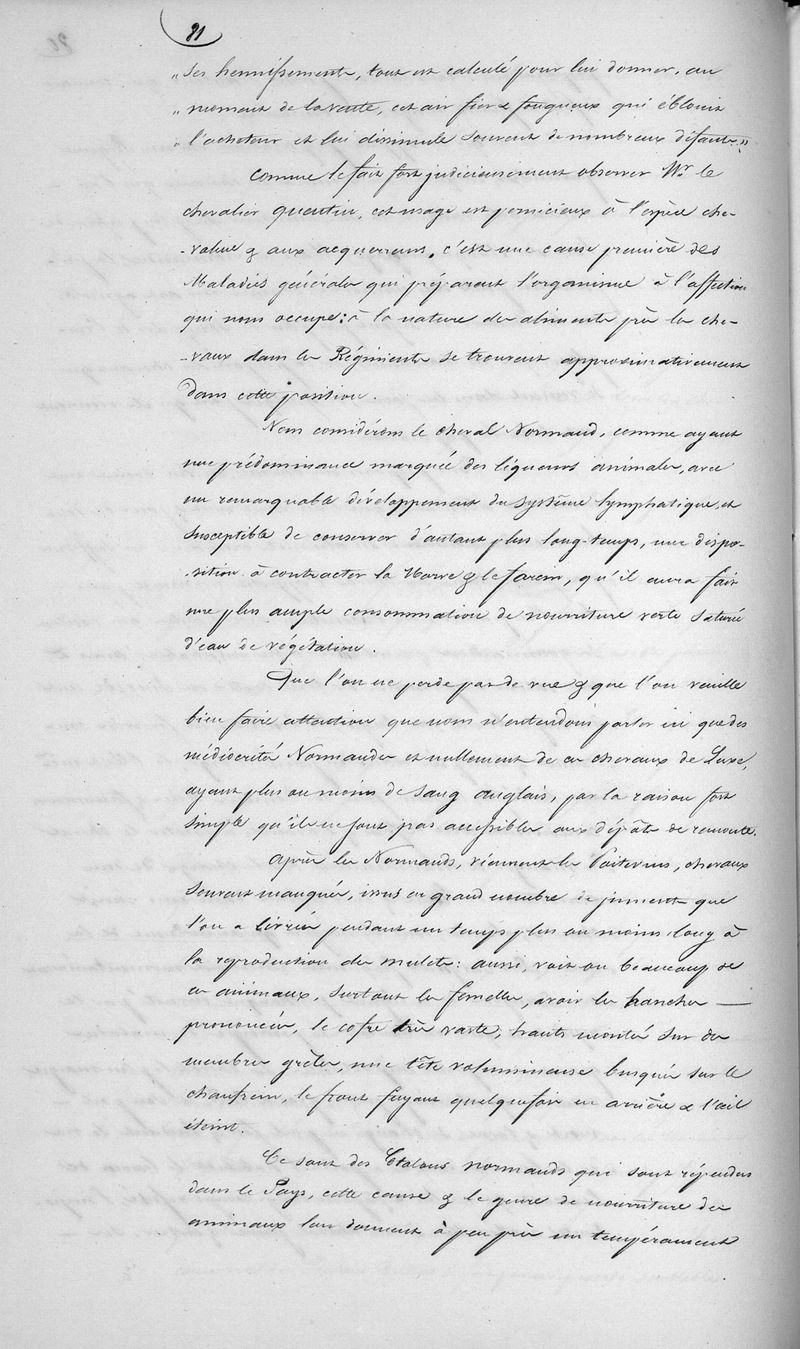 21
" ses hennissements, tout est calculé pour lui donner, au
" moment de la vente, cet air fier & fougueux qui éblouit
" l'acheteur et lui dissimule souvent de nombreux défauts. "
Comme le fait fort judicieusement observer Mr. le
chevalier quentin, cet usage est pernicieux à l'espèce che-
-valine & aux acquereurs, c'est une cause première des
Maladies générales qui préparent l'organisme à l'affection
qui nous occupe: à la nature des aliments près les che-
-vaux dans les Régiments se trouvent approximativement
dans cette position.
Nous considérons le cheval Normand, comme ayant
une prédominance marquée des liqueurs animales, avec
un remarquable développement du système lymphatique, et
susceptible de conserver d'autant plus long-temps, une dispo-
-sition à contracter la Morve & le farcin, qu'il aura fait
une plus ample consommation de nourriture verte saturée
d'eau de végétation.
Que l'on ne perde pas de vue & que l'on veuille
bien faire attention que nous n'entendons parler ici que des
médiocrités Normandes et nullement de ces chevaux de Luxe,
ayant plus ou moins de sang anglais, par la raison fort
simple qu'ils ne sont pas accessibles aux dépôts de remonte.
Après les Normands, viennent les Poitevins, chevaux
souvent manqués, issus en grand nombre de juments que
l'on a livrées pendant un temps plus ou moins long à
la reproduction des mulets: aussi, voit on beaucoup de
ces animaux, surtout les femelles, avoir les hanches
prononcées, le cofre très vaste, hauts montés sur des
membres grêles, une tête volumineuse busquée sur le
chanfrein, le front fuyant quelquefois en arrière & l'œil
éteint.
Ce sont des Etalons normands qui sont répandus
dans le Pays, cette cause & le genre de nourriture des
animaux leur donnent à peu près un tempérament